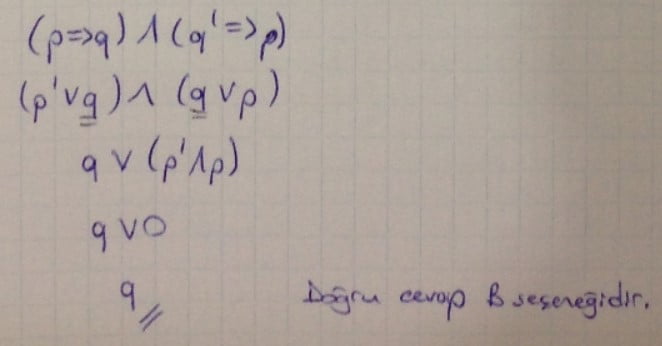 (p=>q) ∧ (q'=>p)
(p'∨q) ∧ (q∨p)
q ∨ (p'∧p)
q ∨ 0
q
Doğru cevap B seçeneğidir.